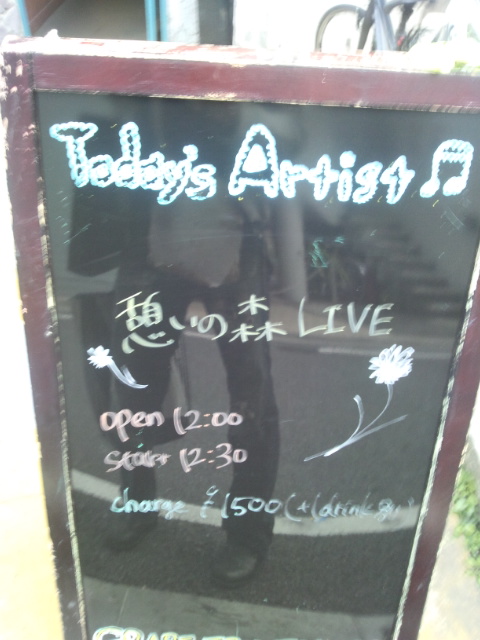 Today's Artist♫
憩いの森 LIVE
open 12:00
start 12:30
charge ¥1500(+1drink